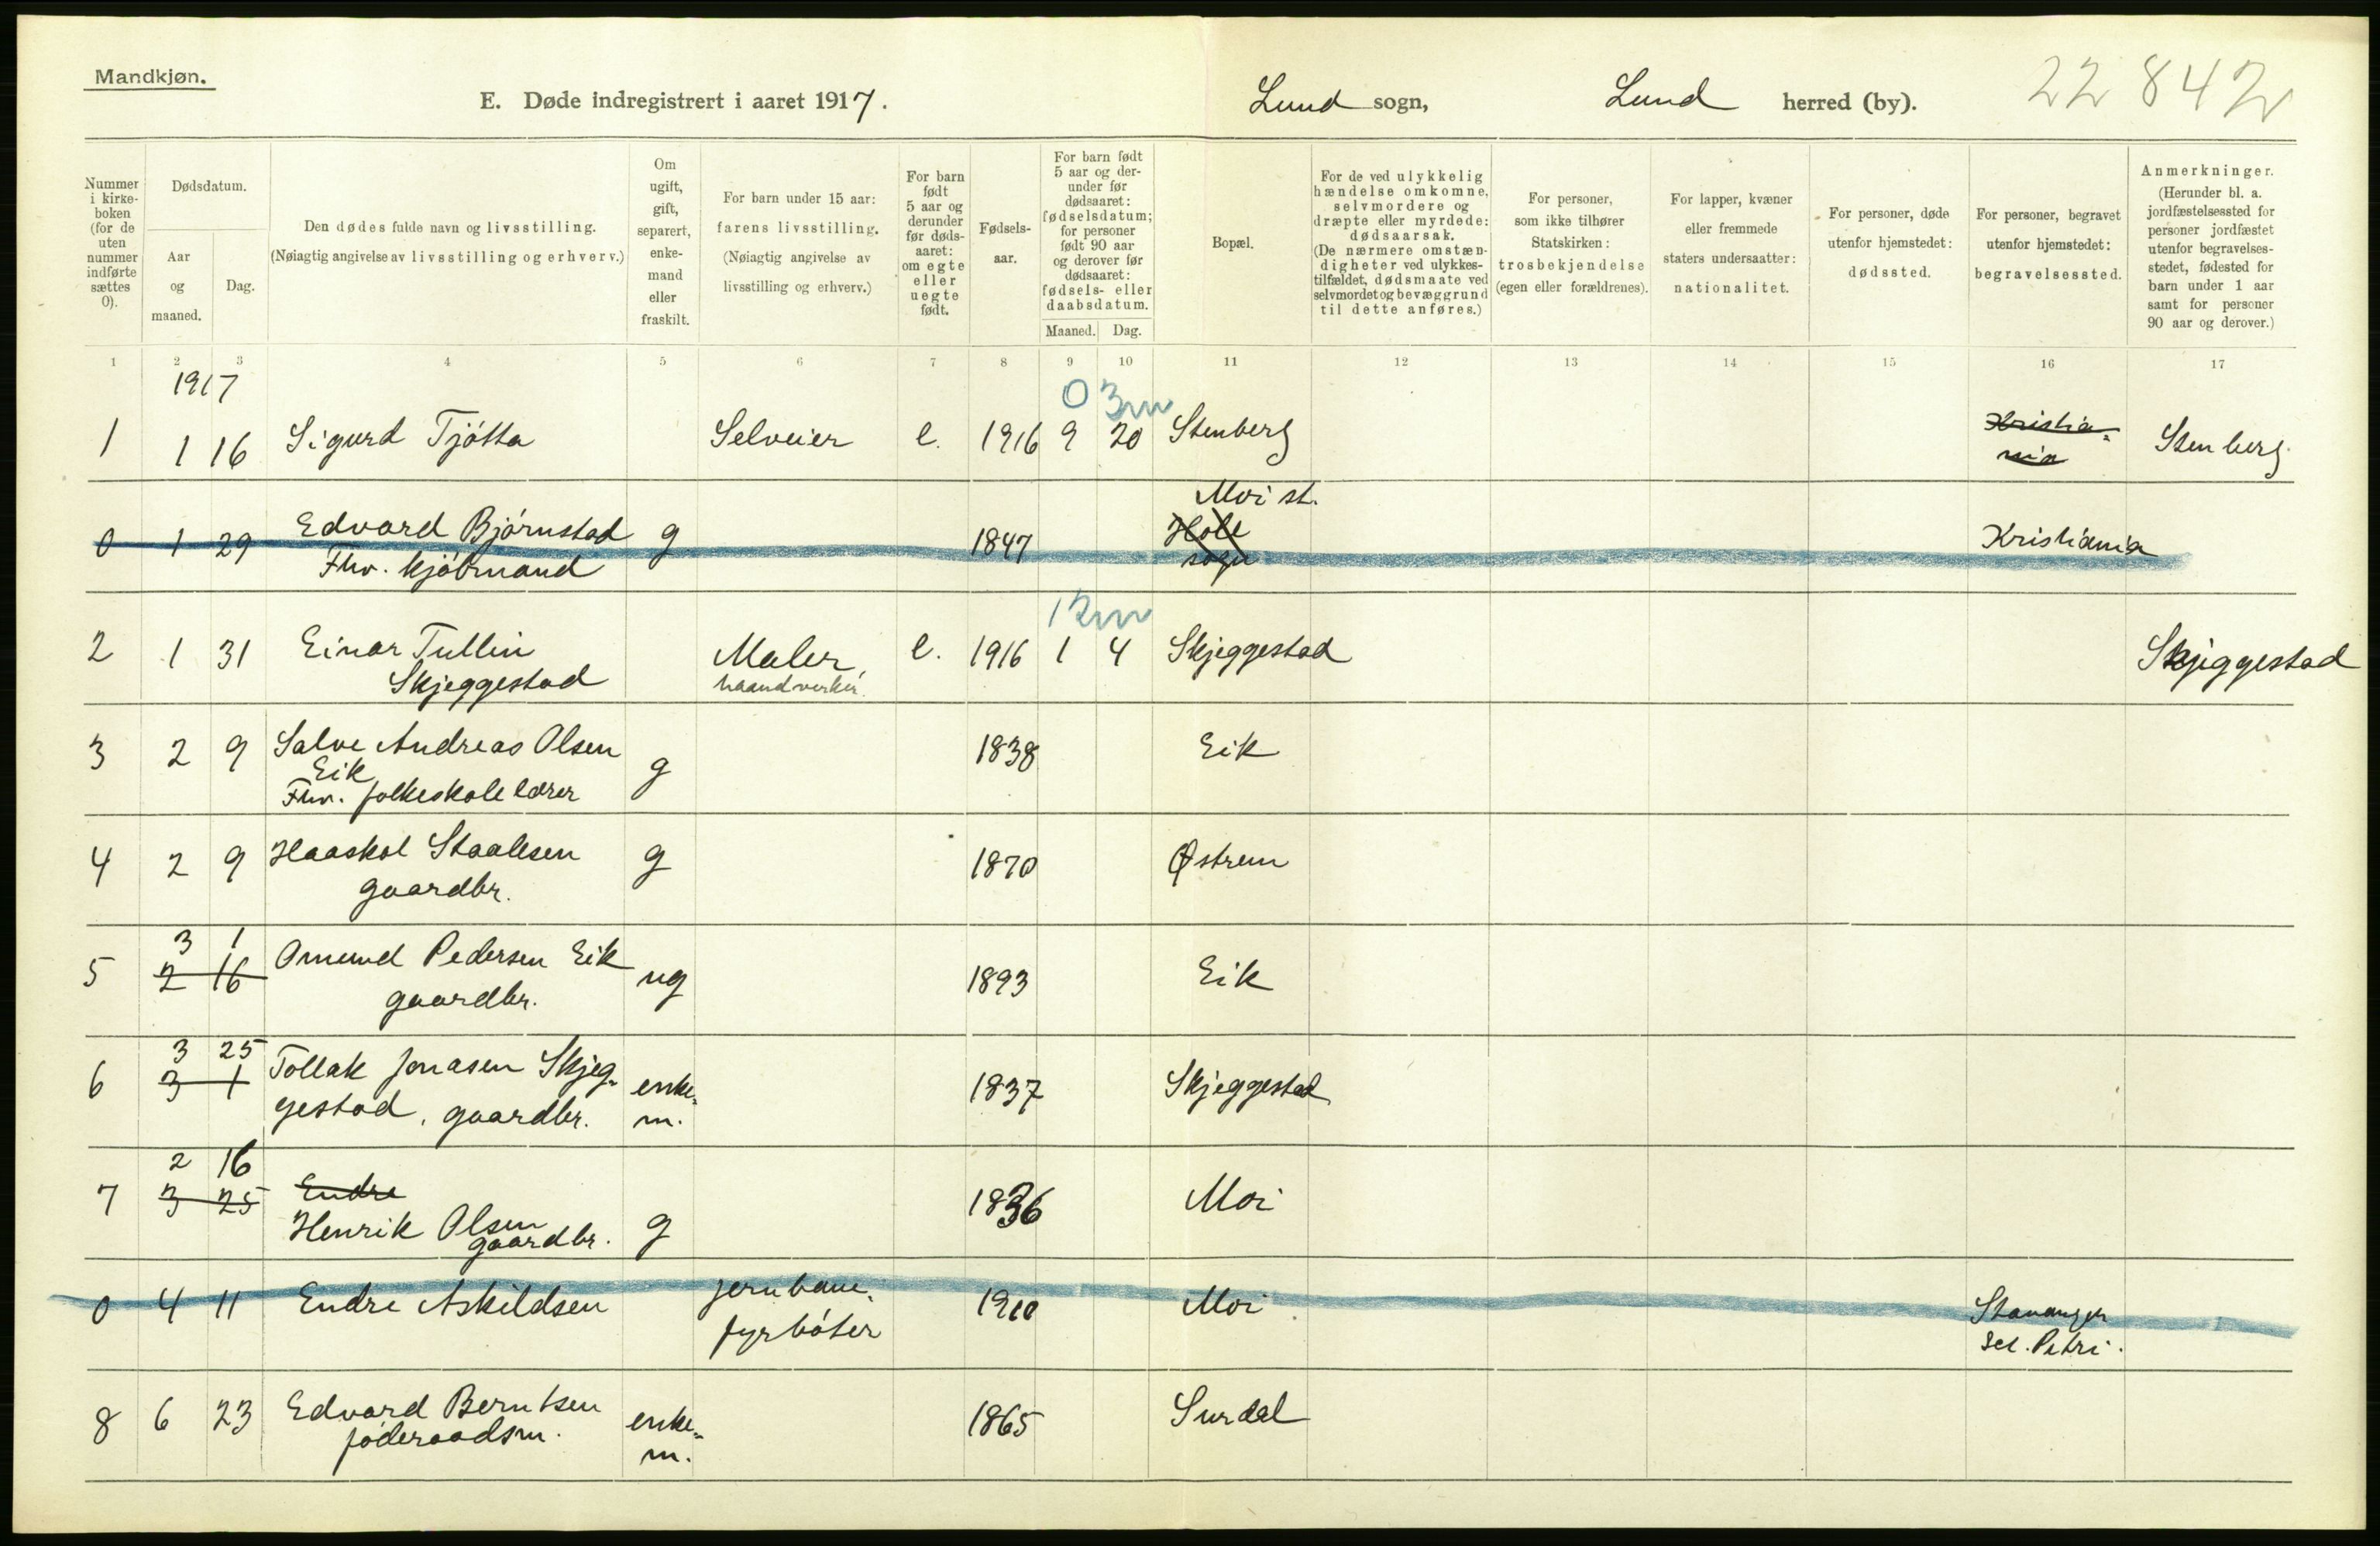 Mandkjøn.
E. Døde indregistrert i aaret 1917. Lund sogn, Lund herred (by). 22 842
Nummer i kirke-boken (for de uten nummer indførte sættes 0).
Dødsdatum.
Aar og maaned.
Dag.
Den dødes fulde navn og livsstilling.
(Nøiagtig angivelse av livsstilling og erhverv.)
Om ugift, gift, separert, enke-mand eller fraskilt.
For barn under 15 aar: farens livsstilling.
(Nøiagtig angivelse av livsstilling og erhverv.)
For barn født 5 aar og derunder før døds-aaret: om egte eller uegte født.
Fødsels-aar.
For barn født 5 aar og der-under før dødsaaret: fødselsdatum; for personer født 90 aar og derover før dødsaaret: fødsels- eller daabsdatum.
Maaned. Dag.
Bopæl.
For de ved ulykkelig hændelse omkomne, selvmordere og dræpte eller myrdede: dødsaarsak.
(De nærmere omstæn-digheter ved ulykkes-tilfældet, dødsmaate ved selvmordet og bevæggrund til dette anføres.)
For personer, som ikke tilhører Statskirken: trosbekjendelse (egen eller forældrenes).
For lapper, kvæner eller fremmede staters undersaatter: nationalitet.
For personer, døde utenfor hjemstedet: dødssted.
For personer, begravet utenfor hjemstedet: begravelsessted.
Anmerkninger.
(Herunder bl. a. jordfæstelsessted for personer jordfæstet utenfor begravelses-stedet, fødested for barn under 1 aar samt for personer 90 aar og derover.)
1 2 3 4 5 6 7 8 9 10 11 12 13 14 15 16 17
1917
0 3m
1 1 16 Sigurd Tjótta Selveier e. 1916 9 20 Stenberg Kristia-nia Stenberg
Moi st.
0 1 29 Edvard Bjórnstad g 1847 Hole sogn Kristiania
Fhv. kjóbmand
1 2m
2 1 31 Einar Tullin Maler, e. 1916 1 4 Skjeggestad Skjeggestad
Skjeggestad haandverker.
3 2 9 Salve Andreas Olsen g 1838 Eik
Eik
Fhv. folkeskolelærer
4 2 9 Haaskol Staalesen g 1870 Østrem
gaardbr.
3 1
5 2 16 Omund Pedersen Eik ug 1893 Eik
gaardbr.
3 25
6 3 1 Tollak Jonasen Skjeg- enke- 1837 Skjeggestad
gestad, gaardbr. m.
2 16
7 3 25 Endre 1836 Moi
Henrik Olsen g
gaardbr.
0 4 11 Endre Askildsen jernbane- 1910 Moi Stavanger
fyrbóter Sct. Petri.
8 6 23 Edvard Berntsen enke- 1865 Surdal
fóderaadsm. m.